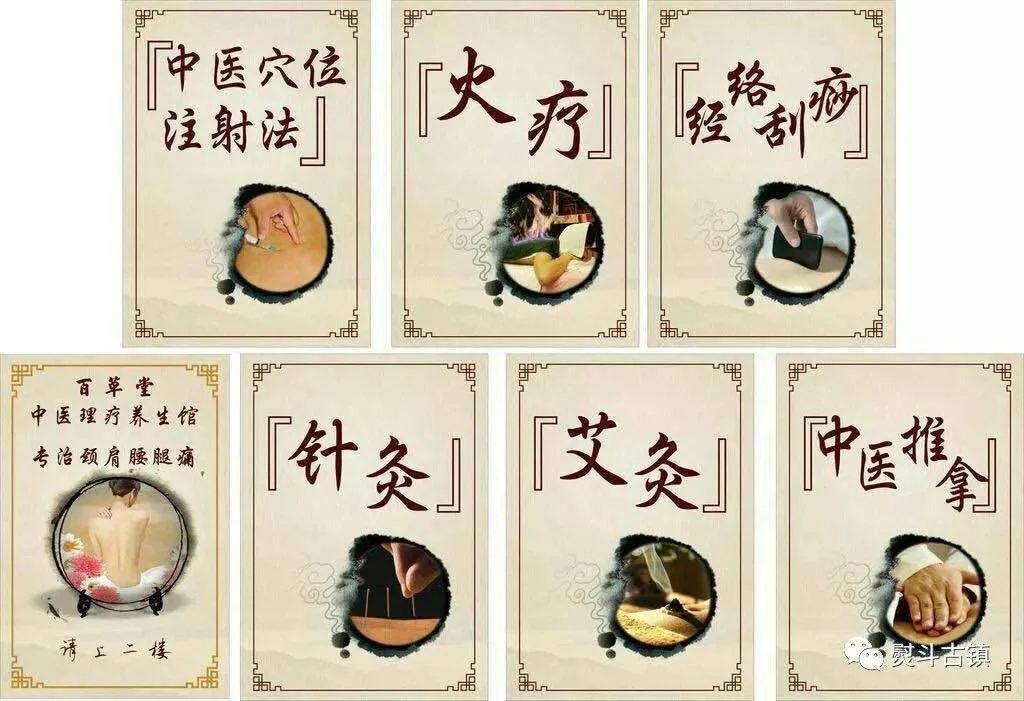 中医穴位
注射法
火疗
经络刮痧
百草堂
中医理疗养生馆
专治颈肩腰腿痛
请上二楼
针灸
艾灸
中医推拿
熨斗古镇